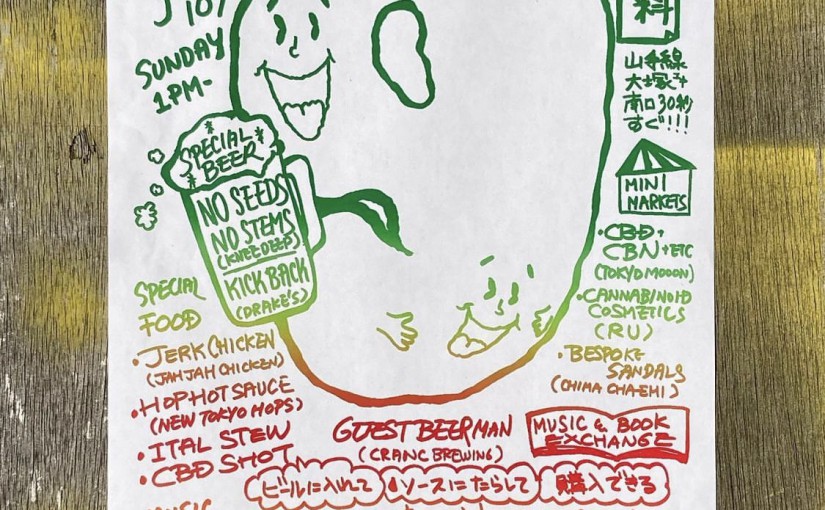 SUNDAY
1PM-
料
山手線
大塚
南口30秒
すぐ!!!
SPECIAL
BEER
NO SEEDS
NO STEMS
(KNEE DEEP)
KICK BACK
(DRAKE'S)
MINI
MARKETS
・CBD,
CBN+ETC
(TOKYO MOOON)
・CANNABINOID
COSMETICS
(RU)
・BESPOKE
SANDALS
(CHIMA CHAEHI)
SPECIAL
FOOD
・JERK CHICKEN
(JAH JAH CHICKEN)
・HOP HOT SAUCE
(NEW TOKYO HOPS)
・ITAL STEW
・CBD SHOT
GUEST BEERMAN
(CRANC BREWING)
MUSIC & BOOK
EXCHANGE
ビールに入れて
ソースにたらして
購入できる
MUSIC